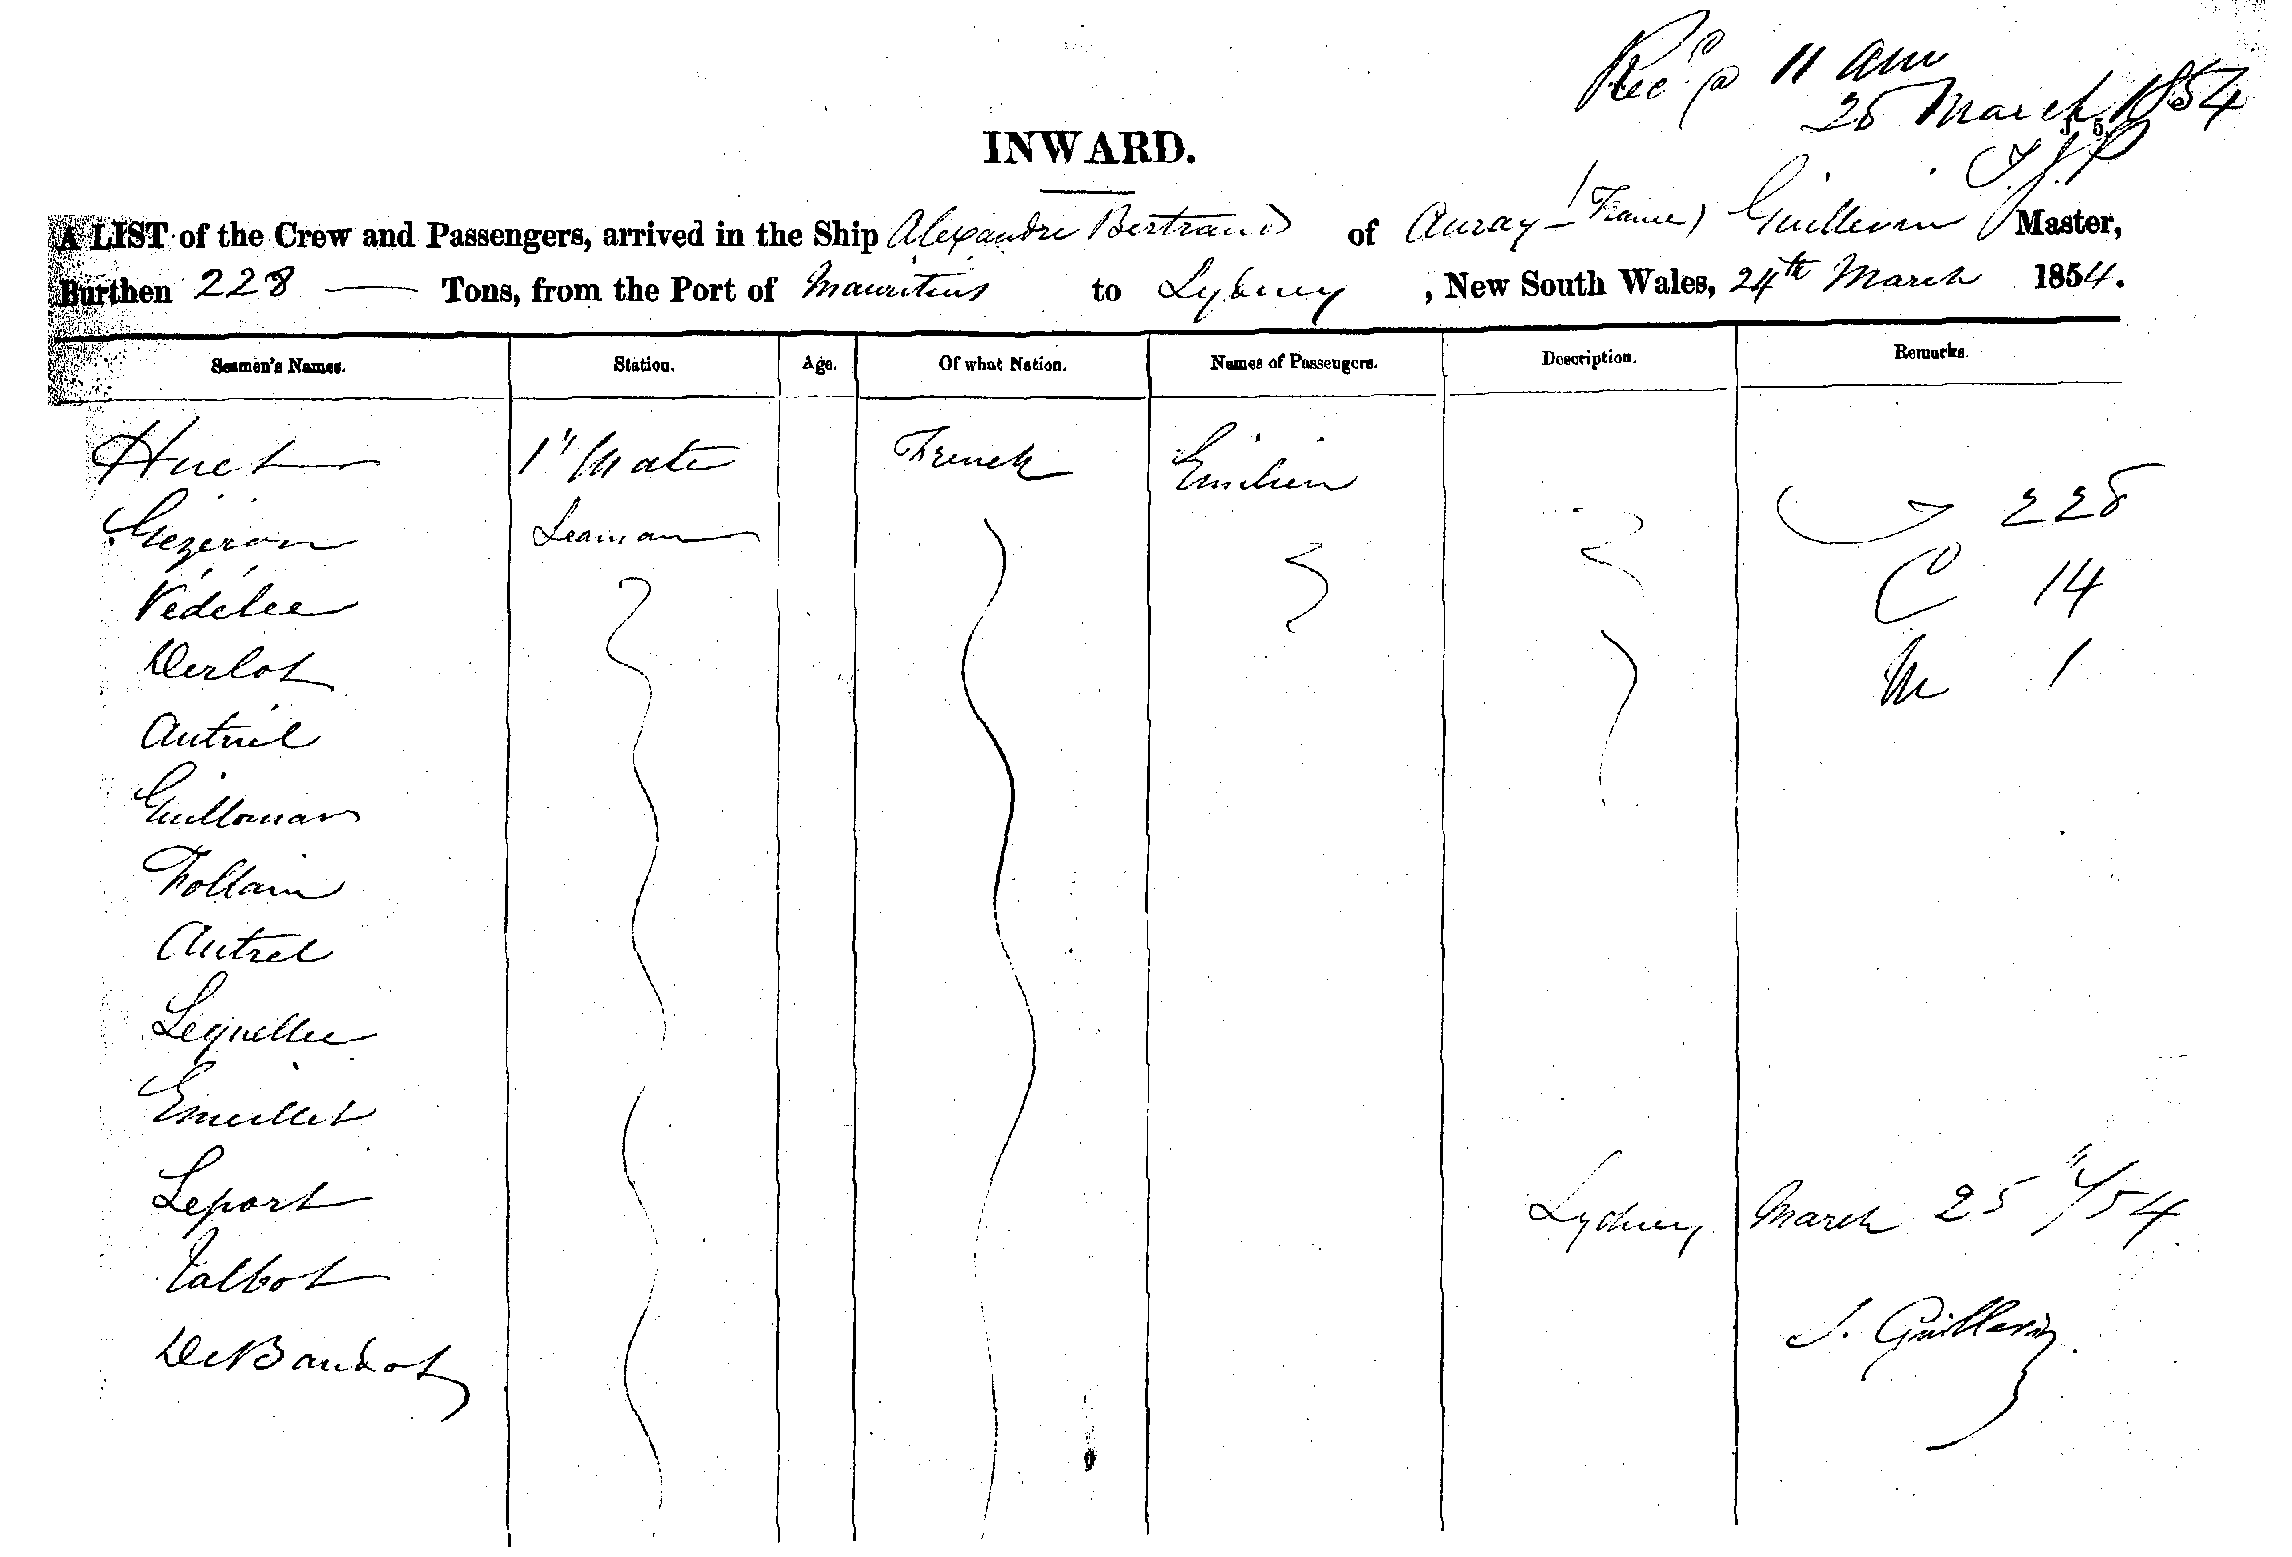 Rec'd @ 11 am
25 March 1854
INWARD.
A LIST of the Crew and Passengers, arrived in the Ship Alexandre Bertrand of Auray (France) Guillevin Master,
Burthen 228 — Tons, from the Port of Mauritius to Sydney, New South Wales, 24th March 1854.
Seamen's Names. Station. Age. Of what Nation. Names of Passengers. Description. Remarks.
Huet 1st Mate French Emilien
Guezeron Seaman 228
Védélee C 14
Derlot M 1
Autriel
Guillomar
Follain
Autrel
Lequellee
Emeillet
Leport Sydney March 25th/54
Talbot
De Baudot J. Guillevin